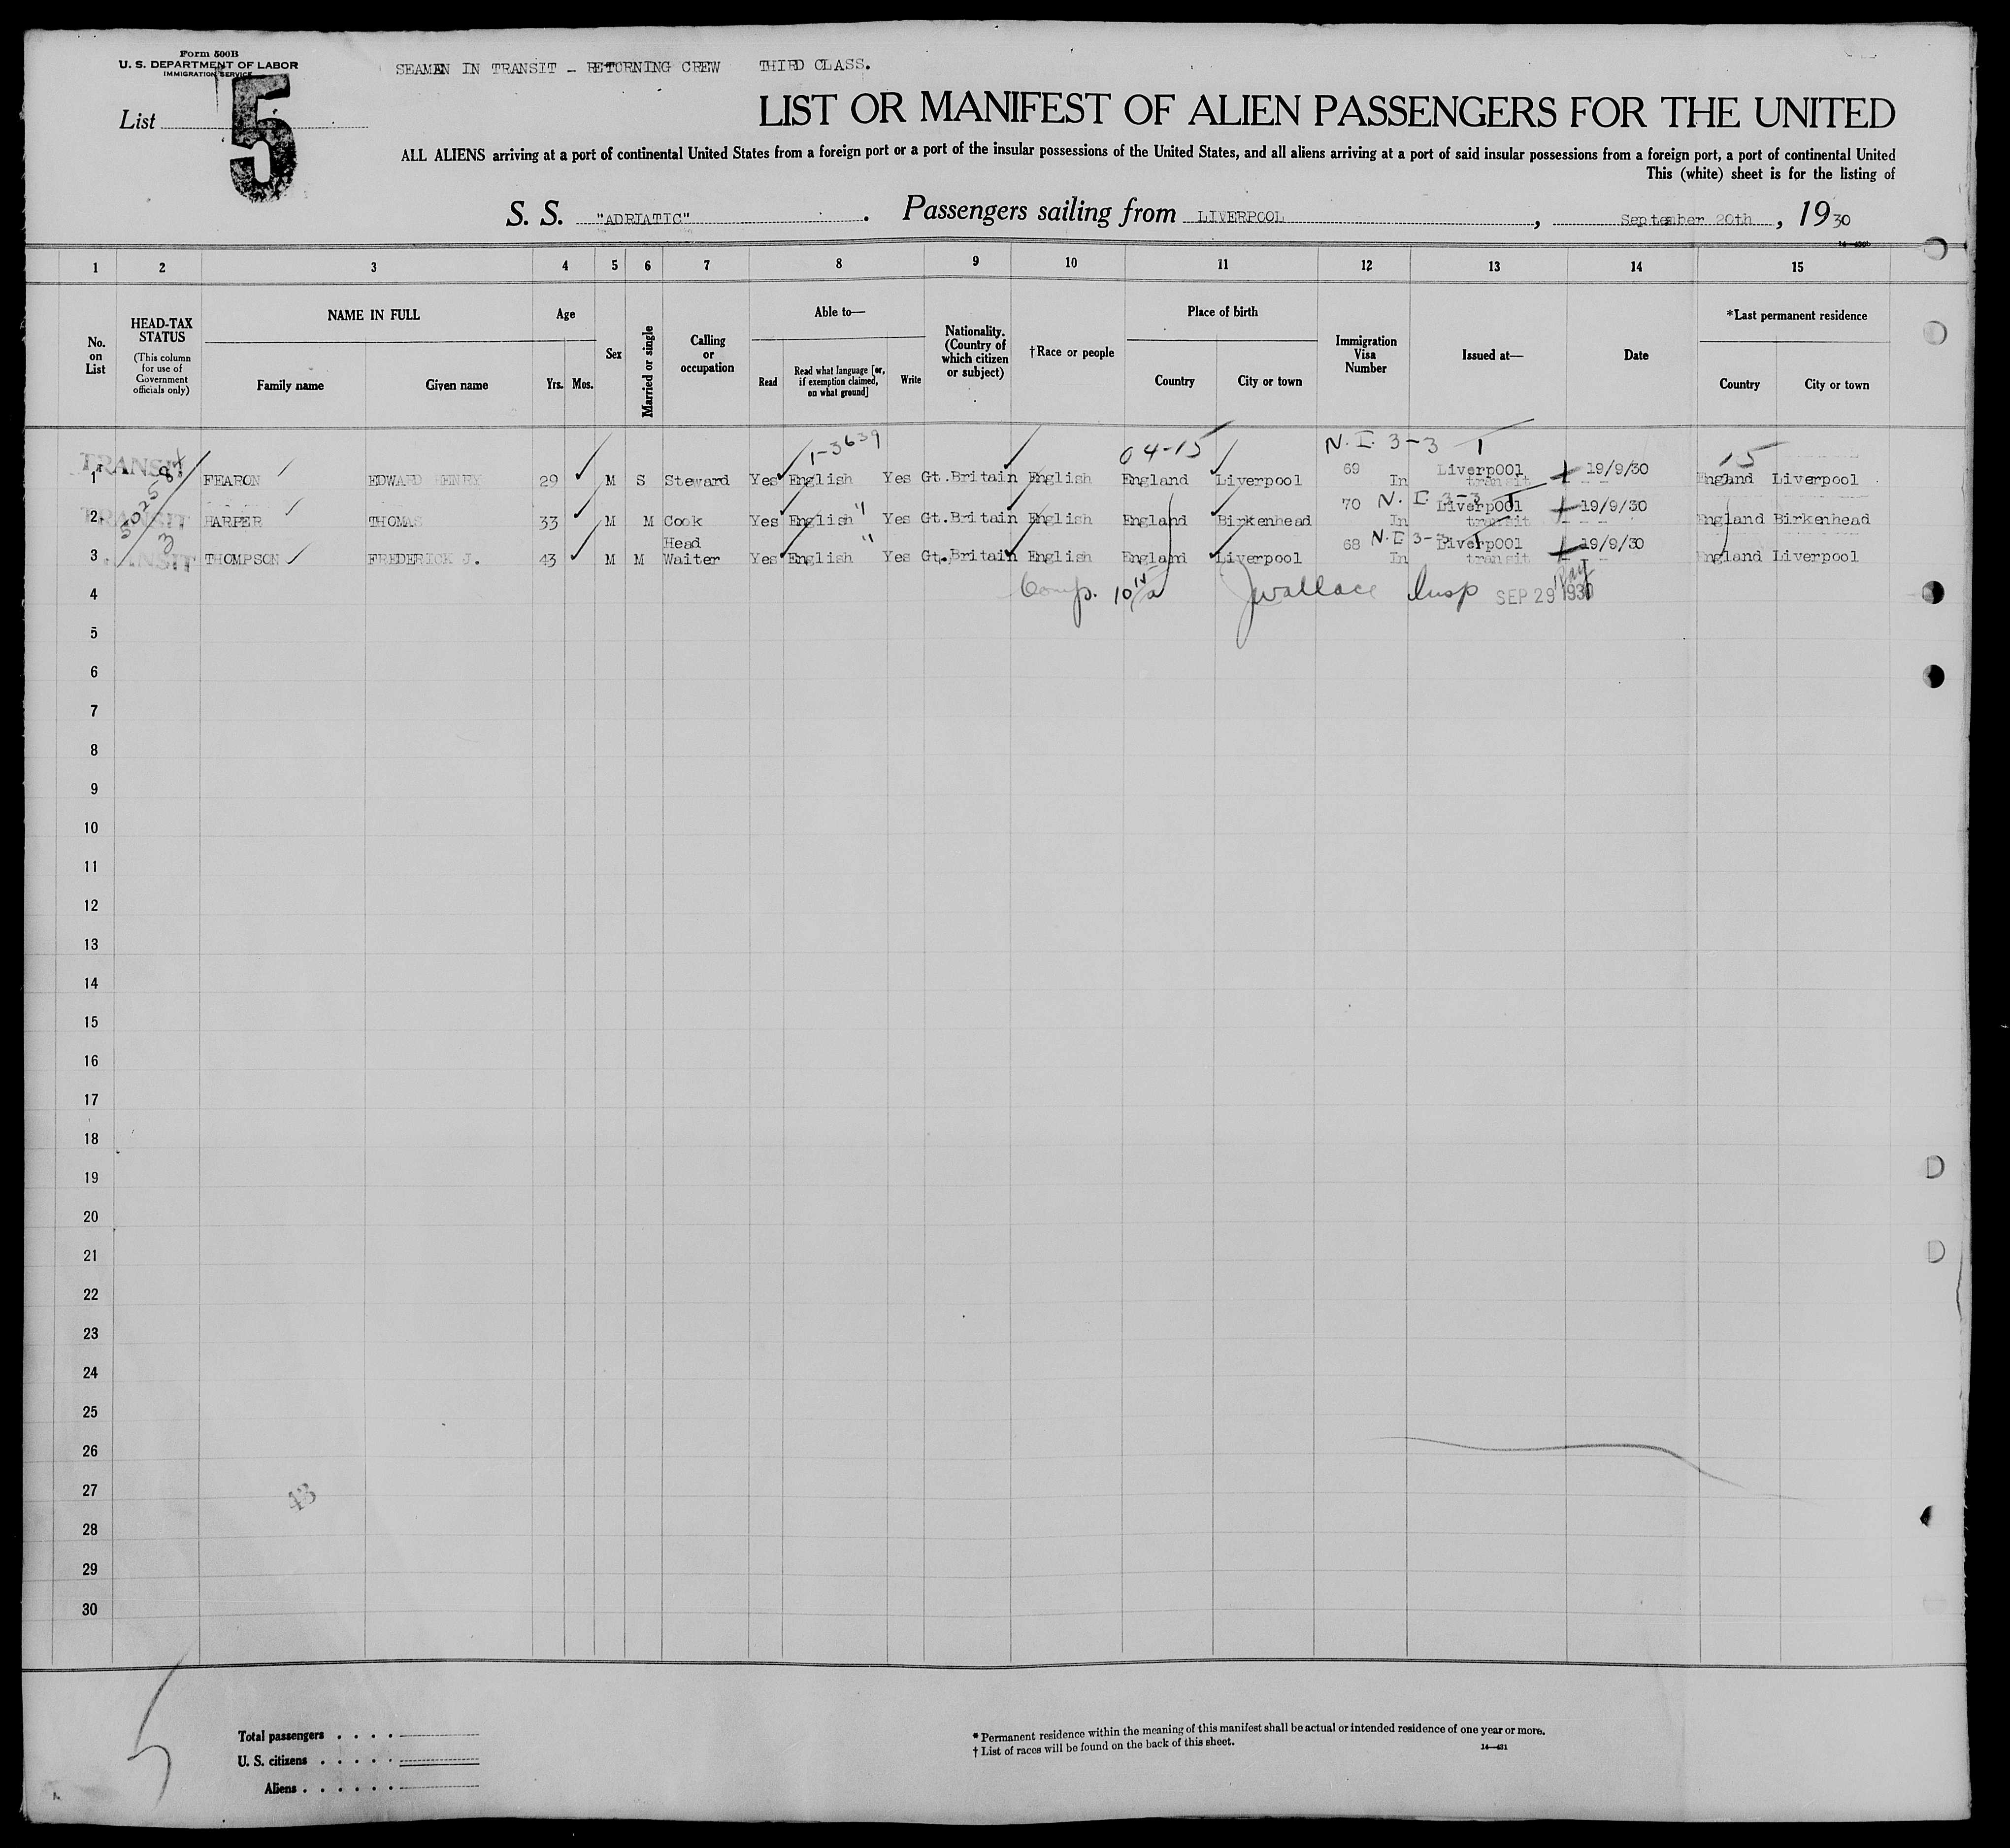 Form 500B
U. S. DEPARTMENT OF LABOR
IMMIGRATION SERVICE
SEAMEN IN TRANSIT - RETURNING CREW THIRD CLASS.
List 5
LIST OR MANIFEST OF ALIEN PASSENGERS FOR THE UNITED
ALL ALIENS arriving at a port of continental United States from a foreign port or a port of the insular possessions of the United States, and all aliens arriving at a port of said insular possessions from a foreign port, a port of continental United
This (white) sheet is for the listing of
S. S. "ADRIATIC". Passengers sailing from LIVERPOOL, September 20th, 1930
14—430b
1 2 3 4 5 6 7 8 9 10 11 12 13 14 15
No. on List
HEAD-TAX STATUS
(This column for use of Government officials only)
NAME IN FULL
Family name Given name
Age
Yrs. Mos.
Sex
Married or single
Calling or occupation
Able to—
Read
Read what language [or, if exemption claimed, on what ground]
Write
Nationality. (Country of which citizen or subject)
†Race or people
Place of birth
Country City or town
Immigration Visa Number
Issued at—
Date
*Last permanent residence
Country City or town
1-3639 04-15 N. I. 3-3 T 15
TRANSIT
1 FEARON EDWARD HENRY 29 M S Steward Yes English Yes Gt.Britain English England Liverpool 69 In Liverpool transit 19/9/30 England Liverpool
TRANSIT
2 HARPER THOMAS 33 M M Cook Yes English " Yes Gt.Britain English England Birkenhead 70 In N. I 3-3 T Liverpool transit 19/9/30 England Birkenhead
TRANSIT
3 THOMPSON FREDERICK J. 43 M M Head Waiter Yes English " Yes Gt.Britain English England Liverpool 68 In N I 3-3 T Liverpool transit 19/9/30 England Liverpool
4 Comp. JWallace Insp SEP 29 1930
5
6
7
8
9
10
11
12
13
14
15
16
17
18
19
20
21
22
23
24
25
26
27
43
28
29
30
Total passengers . . . .
U. S. citizens . . . . .
Aliens . . . . . .
* Permanent residence within the meaning of this manifest shall be actual or intended residence of one year or more.
† List of races will be found on the back of this sheet.
14—431